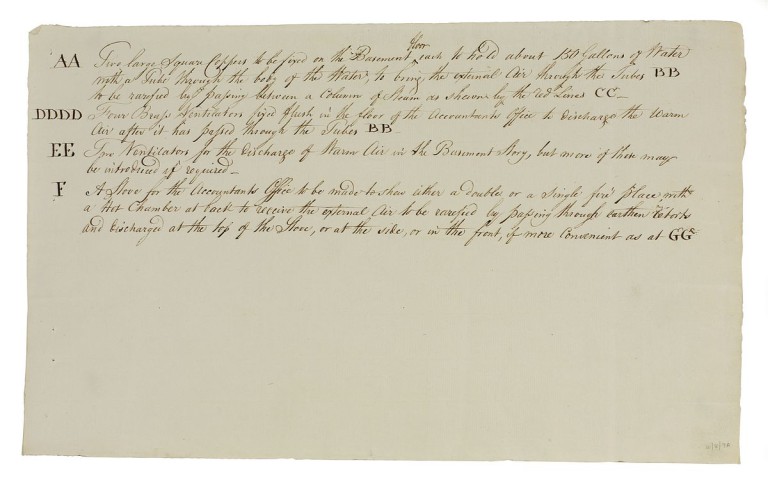 floor
AA Two large Square Coppers to be fixed on the Basement each to hold about 150 Gallons of Water
with a Tube through the body of the Water, to bring the external Air through the Tubes BB
to be rarefied by passing between a Column of Steam as shewn by the red Lines CC—
DDDD Four Brass Ventilators fixed flush in the floor of the Accountants Office to discharge the Warm
Air after it has passed through the Tubes BB—
EE Two Ventilators for the discharge of Warm Air in the Basement Story, but more of these may
be introduced if required—
F A Stove for the Accountants Office to be made to shew either a double or a single fire place, with
a Hot Chamber at back to receive the external Air to be rarefied by passing through earthen Retorts
and discharged at the top of the Stove, or at the side, or in the front, if more Convenient as at GG